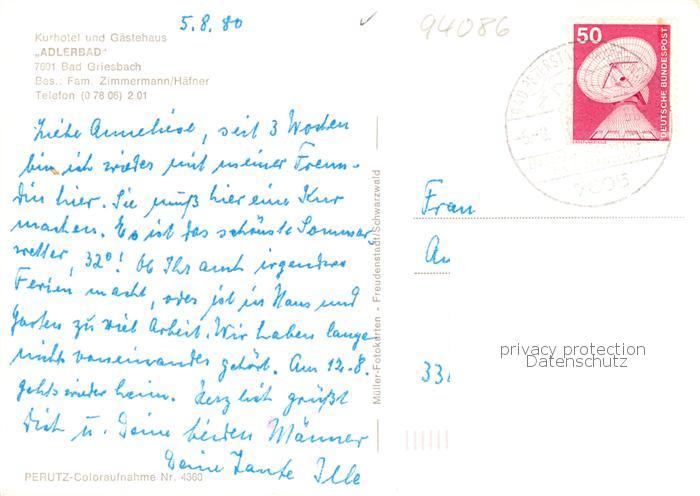 5.8.80
94086
Kurhotel und Gästehaus
„ADLERBAD"
7601 Bad Griesbach
Bes.: Fam. Zimmermann/Häfner
Telefon (0 78 06) 2 01
Liebe Anneliese, seit 3 Wochen
bin ich wieder mit meiner Freun-
din hier. Sie muß hier eine Kur
machen. Es ist das schönste Sommer
wetter, 32°! Ob Ihr auch irgendwo
Ferien macht, oder ist in Haus und
Garten zu viel Arbeit. Wir haben lange
nichts voneinander gehört. Am 12.8.
gehts wieder heim. Herzlich grüßt
Dich u. Deine beiden Männer
Deine Tante Ille
PERUTZ-Coloraufnahme Nr. 4360
Müller-Fotokarten - Freudenstadt/Schwarzwald
50
DEUTSCHE BUNDESPOST
Frau
An
33
privacy protection
Datenschutz